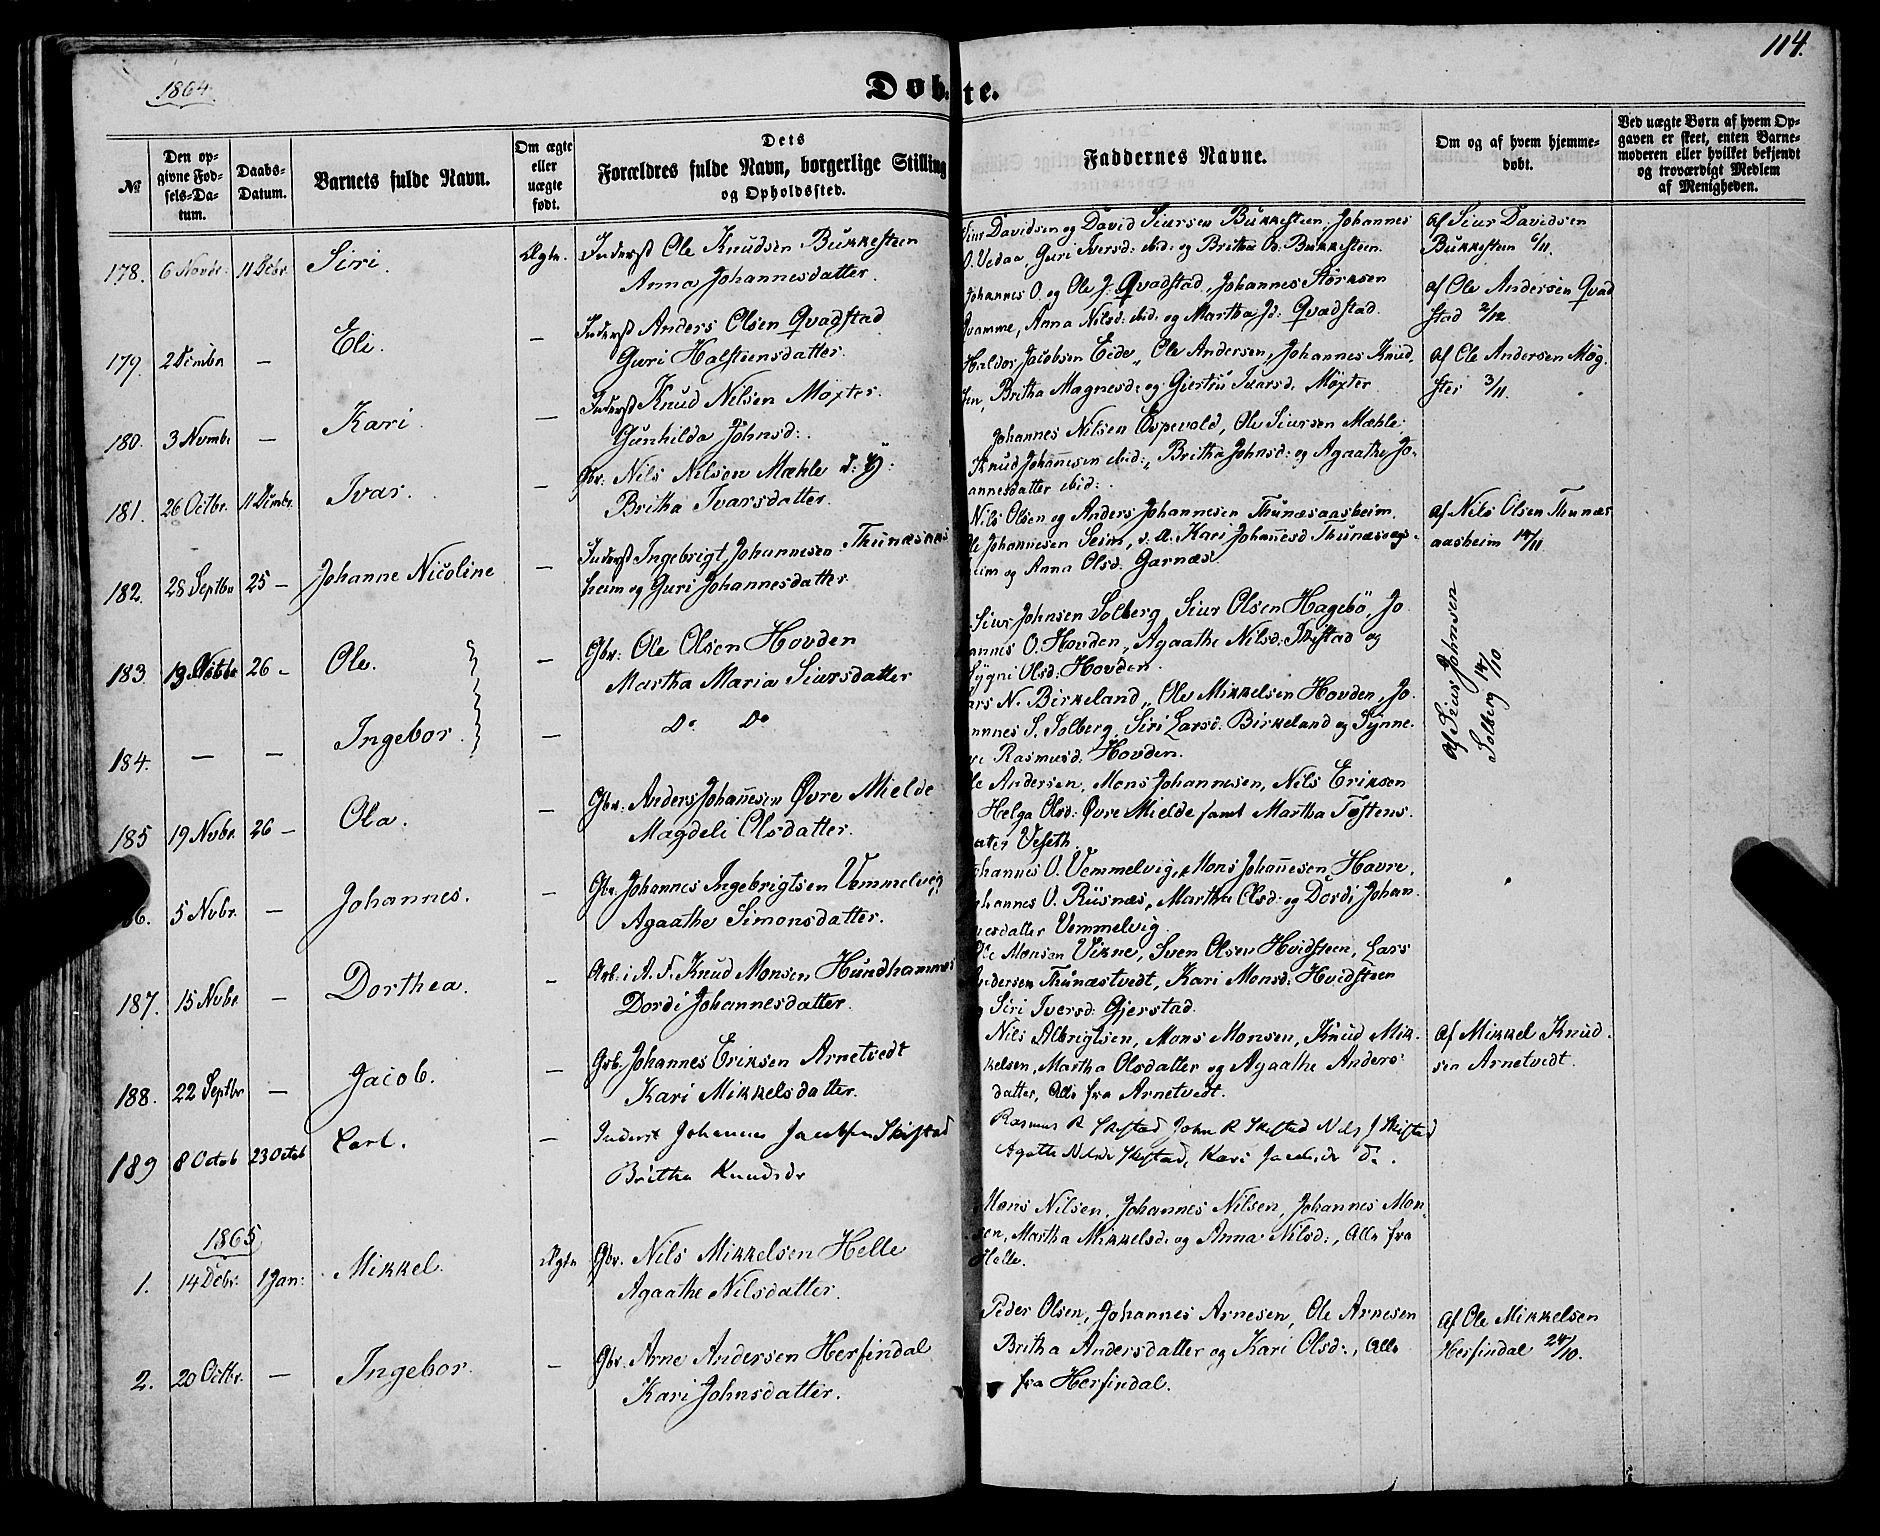 1864
114.
Døbte.
№
Den opgivne Fødsels-Datum.
Daabs-Datum.
Barnets fulde Navn.
Om ægte eller uægte født.
Dets Forældres fulde Navn, borgerlige Stilling og Opholdssted.
Faddernes Navne.
Om og af hvem hjemmedøbt.
Ved uægte Børn af hvem Opgaven er skeet, enten Barnemoderen eller hvilket bekjendt og troværdigt Medlem af Menigheden.
178. 6 Novbr. 11 Debr. Siri. Ægte. Inderst Ole Knudsen Bukkesteen
Anna Johannesdatter.
Siur Davidsen og David Siursen Bukkesteen, Johannes
O. Vedaa, Guri Iversd: ibid: og Britha O. Bukkesteen.
af Siur Davidsen
Bukkesteen 6/11.
179. 2 Dcmbr — Eli. — Inderst Anders Olsen Qvadstad
Guri Halsteensdatter.
Johannes O. og Ole J. Qvadstad, Johannes Størksen
Qvamme, Anna Nilsd: ibid: og Martha Jd: Qvadstad.
af Ole Andersen Qvad
stad 2/12.
180. 3 Novmbr — Kari. — Inderst Knud Nilsen Møxter.
Gunhilda Johnsd:.
Haldor Jacobsen Eide, Ole Andersen, Johannes Knud
sen, Britha Magnesd: og Giertru Ivarsd. Møxter
af Ole Andersen Møg
ster 3/11.
181. 26 Octbr. 11 Dcmbr. Ivar. — Gbr: Nils Nilsen Mæhle d: y:
Britha Ivarsdatter.
Johannes Nilsen Espevold, Ole Siursen Mæhle,
Knud Johannesen ibid:, Britha Johnsd: og Agaathe Jo-
annesdatter ibid:.
182. 28 Septbr 25 — Johanne Nicoline — Inderst Ingebrigt Johannesen Thunæsaas
heim og Guri Johannesdatter.
Nils Olsen og Anders Johannesen Thunæsaasheim,
Ole Johannesen Seim, Kari Johannesd Thunæsaas-
heim og Anna Olsd: Garnæs.
af Nils Olsen Thunæs
aasheim 14/11
183. 13 Octbr 26 - Ole. — Gbr: Ole Olsen Hovden
Martha Maria Siursdatter
Siur Johnsen Solberg, Siur Olsen Hagebö, Jo
annes O. Hovden, Agaathe Nilsd: Skistad og
Sygni Olsd: Hovden.
af Siur Johnsen
Solberg 14/10.
184. — — Ingebor. — Do Do
Lars N. Birkeland, Ole Mikkelsen Hovden, Jo
annes S. Solberg, Siri Larsd: Birkeland og Synne-
ve Rasmusd: Hovden.
185 19 Nvbr. 26 — Ola. — Gbr. Anders Johannesen Øvre Mielde
Magdeli Olsdatter.
Ole Andersen, Mons Johannesen, Nils Eriksen
Helga Olsd: Øvre Mielde samt Martha Tostens
dater Veseth.
186. 5 Nvbr. — Johannes. — Gbr. Johannes Ingebrigtsen Vemmelvig
Agaathe Simonsdatter.
Johannes O. Vemmelvig, Mons Johannesen Havre,
Johannes O. Riisnæs, Martha Olsd: og Dordi Johan-
nesdatter Vemmelvig.
187. 15 Nvbr — Dorthea. — Arb. i A. F. Knud Monsen Hundhammer
Dordi Johannesdatter.
Ole Monsen Vikne, Sven Olsen Hvidsteen, Lars
Andersen Thunæstvedt, Kari Monsd: Hvidsteen
og Siri Iversd: Gjerstad.
188. 22 Septbr — Jacob. — Gbr. Johannes Eriksen Arnetvedt
Kari Mikkelsdatter.
Nils Albrigtsen, Mons Monsen, Knud Mik-
kelsen, Martha Olsdatter og Agaathe Anders-
datter, Alle fra Arnetvedt.
af Mikkel Knud-
sen Arnetvedt.
189 8 Octob 23 Octob Carl. — Inderst Johannes Jacobsen Skistad
Britha Knudsdr
Rasmus R Skistad John R Skistad Nils J Skistad
Agathe Nilsdr Skistad, Kari Jacobsdr Do.
1865
1. 14 Debr. 1 Jan: Mikkel. Ægte Gbr. Nils Mikkelsen Helle
Agaathe Nilsdatter.
Mons Nilsen, Johannes Nilsen, Johannes Mon-
sen, Martha Mikkelsd: og Anna Nilsd:, Alle fra
Helle.
2. 20 Octbr. — Ingebor. — Gbr. Arne Andersen Herfindal
Kari Johnsdatter.
Peder Olsen, Johannes Arnesen, Ole Arnesen
Britha Andersdatter og Kari Olsd:, Alle
fra Herfindal.
af Ole Mikkelsen
Herfindal 24/10.